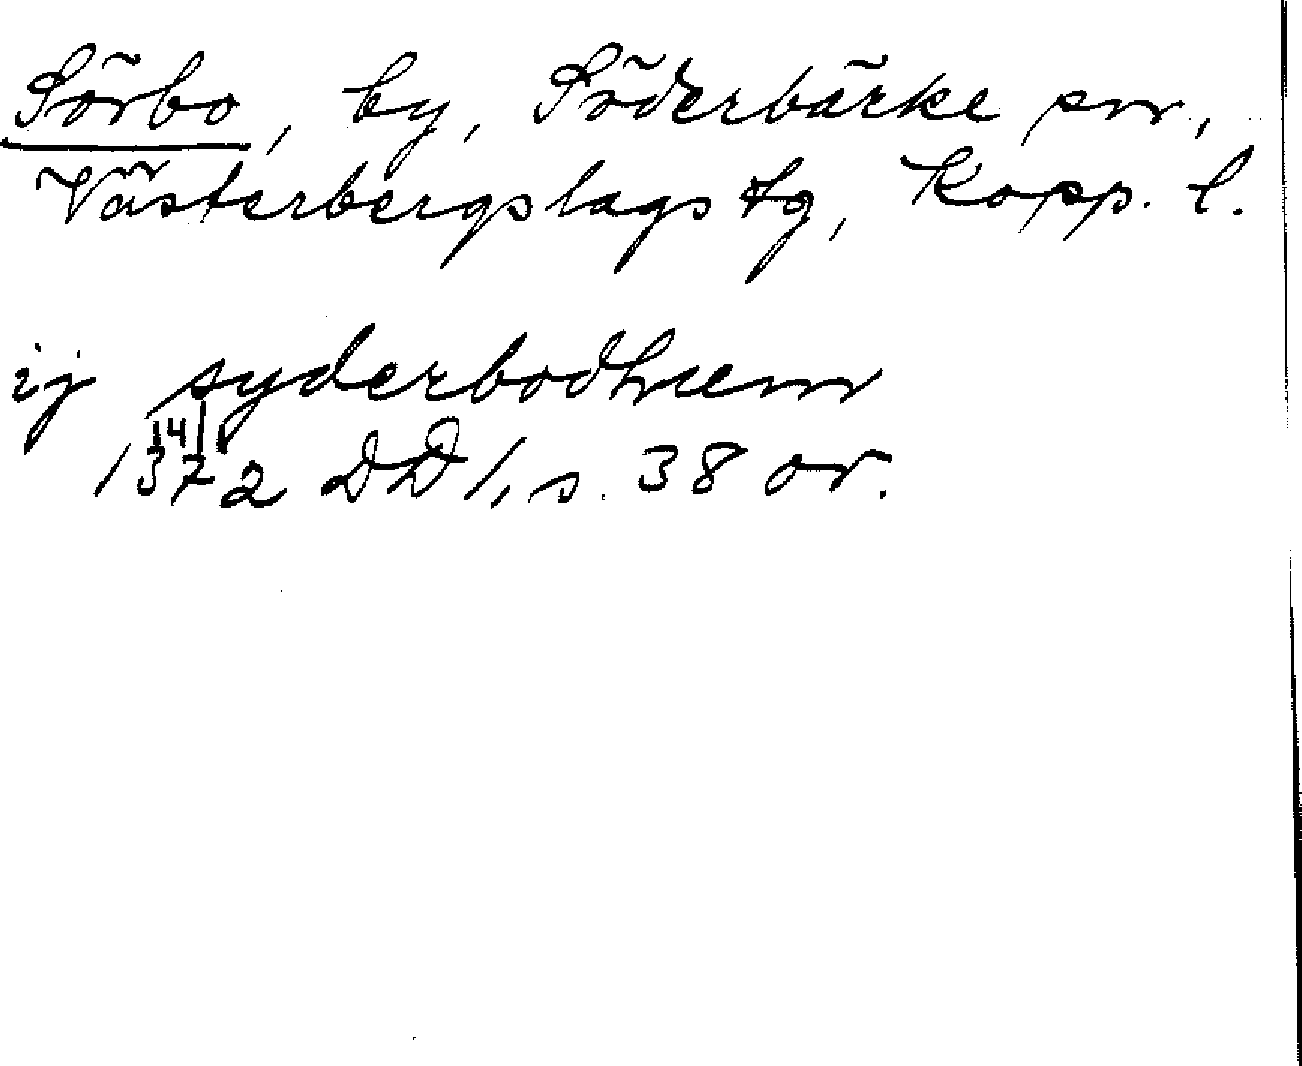 Sörbo, by, Söderbärke sn,
Västerbergslags tg, Kopp. l.
ij syderbodhum
14/1
1372 DD 1, s. 38 or.